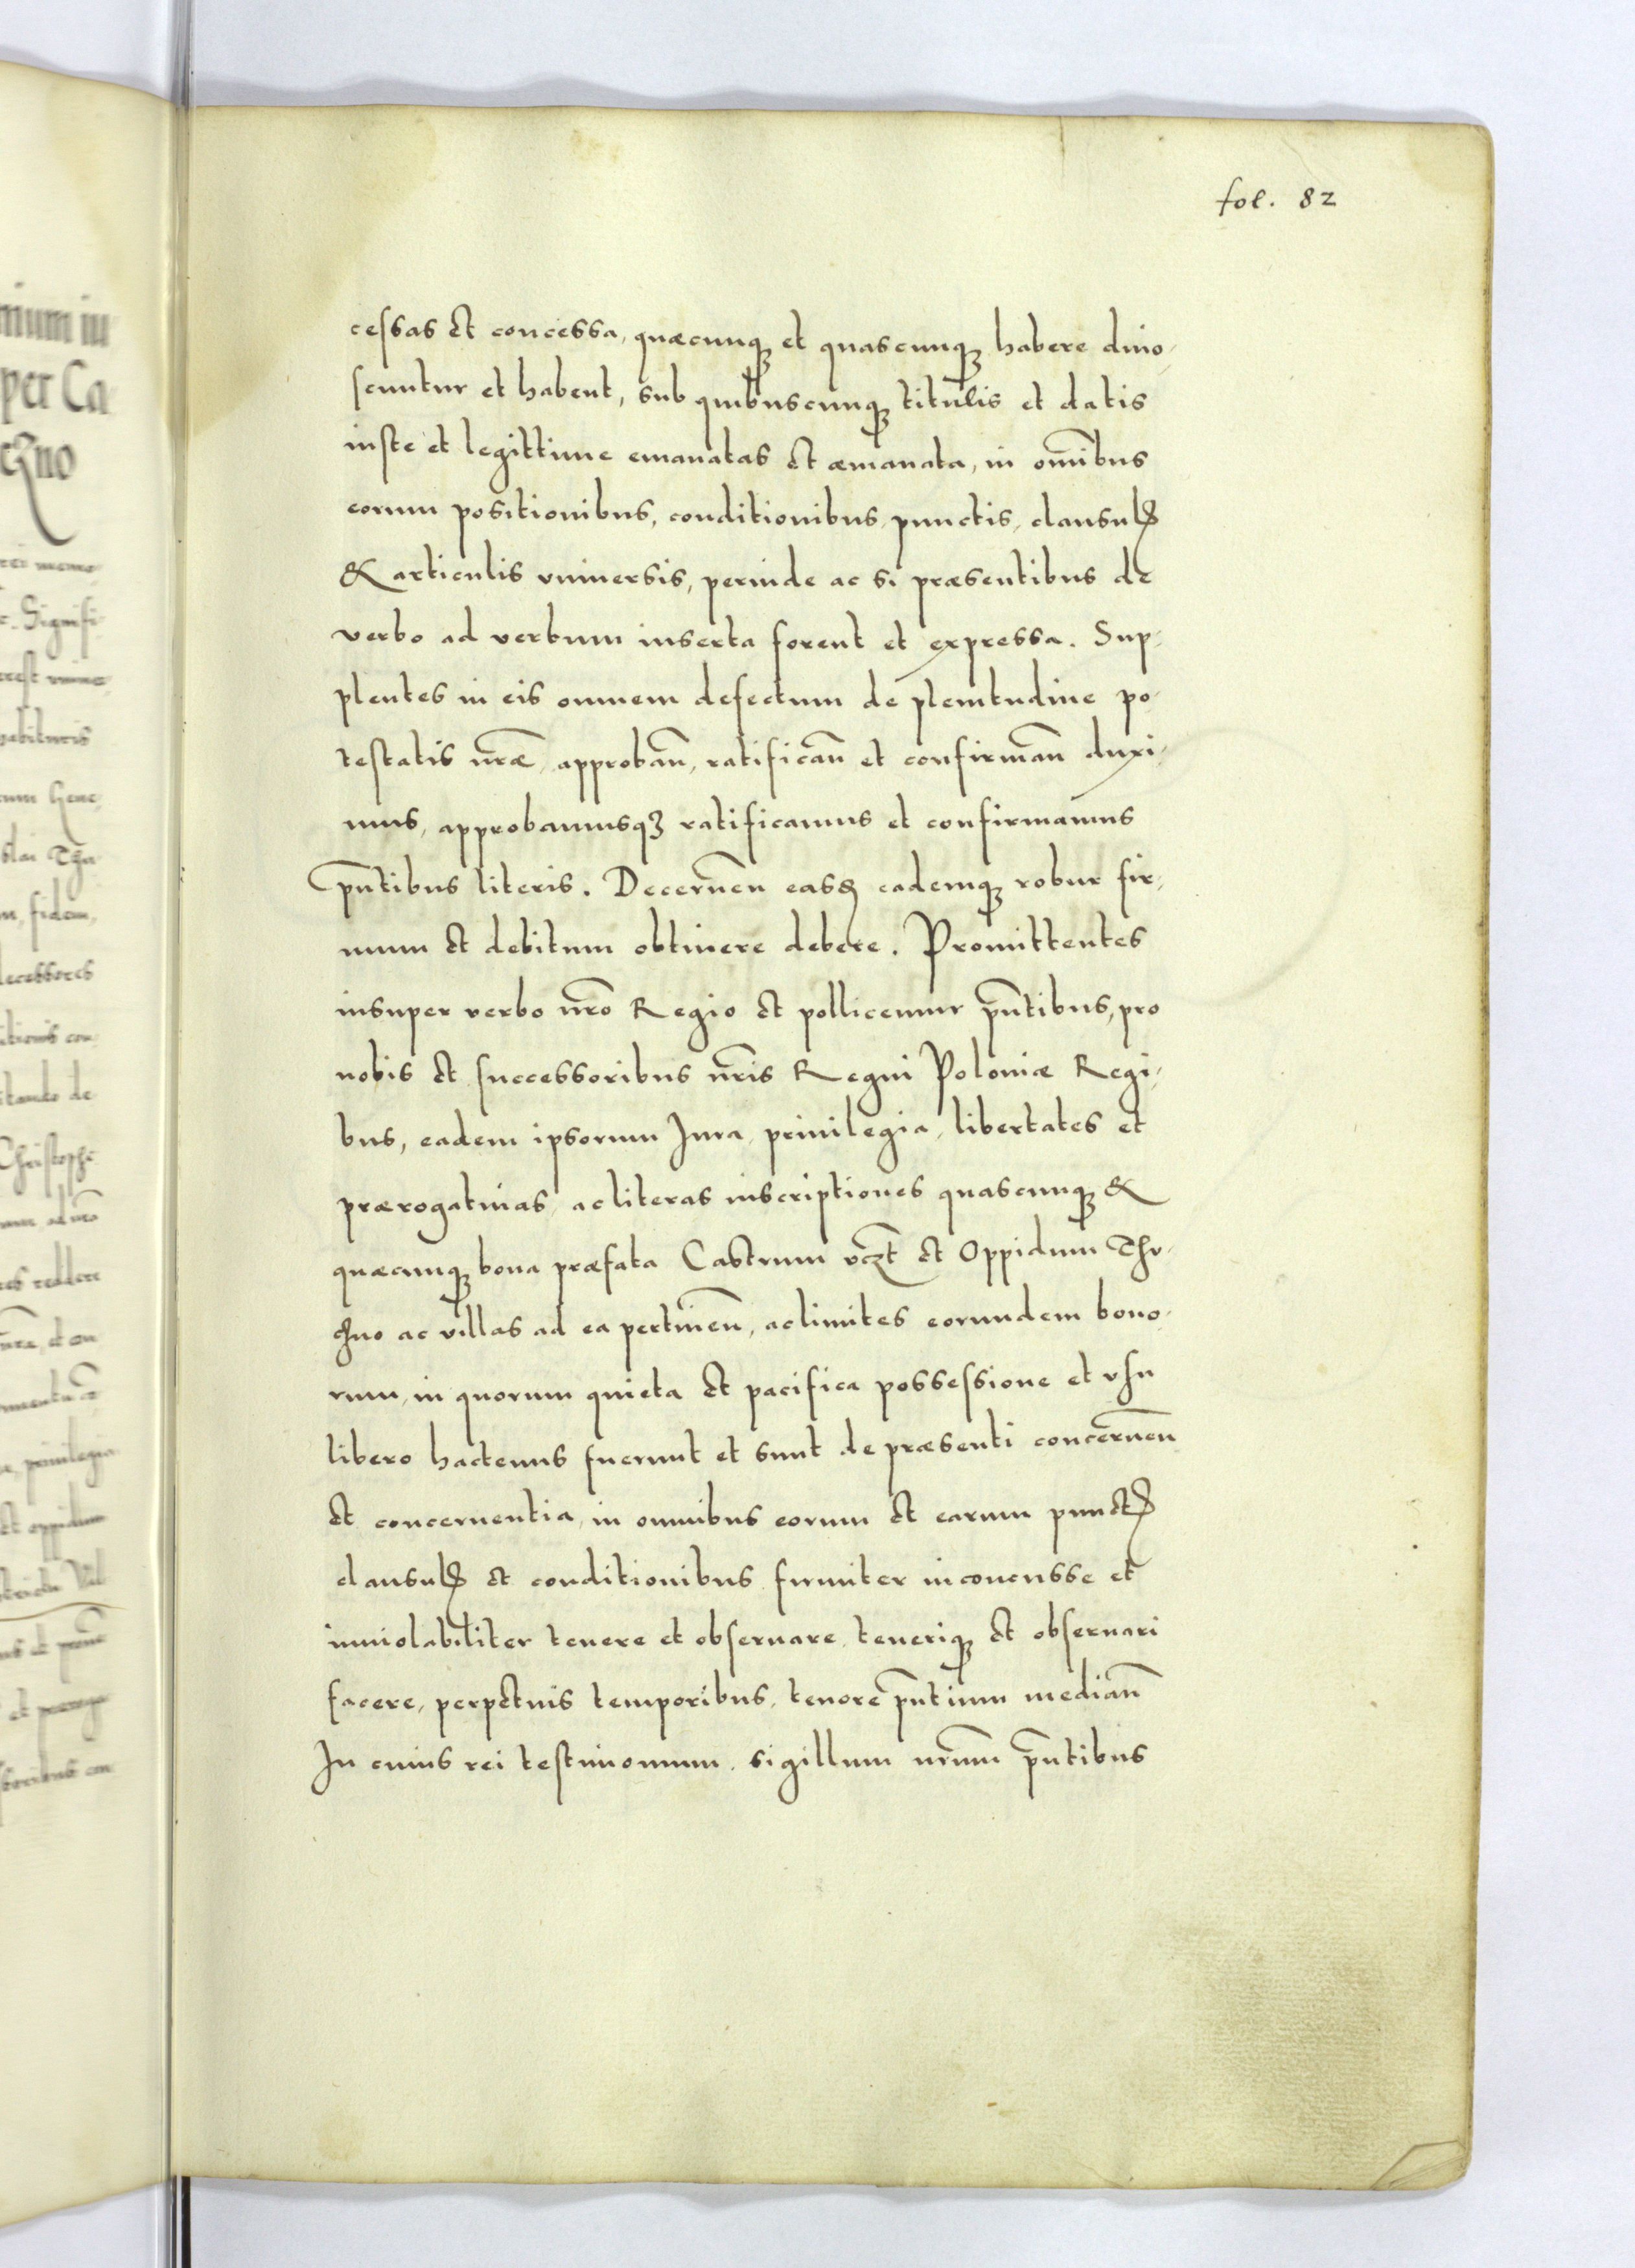 fol. 82
cessas et concessa, quæcunqꝫ et quascunqꝫ habere dino-
scuntur et habent, sub quibuscunqꝫ titulis et datis
iuste et legittime emanatas et æmanata, in om̄ibus
eorum positionibus, conditionibus, punctis, clausulꝭ
& articulis vniuersis, perinde ac si præsentibus de
verbo ad verbum inserta forent et expressa. Sup-
plentes in eis omnem defectum de plenitudine po-
testatis nr̄æ, approban̄, ratifican̄ et confirman̄ duxi-
mus, approbamusqꝫ ratificamus et confirmamus
pn̄tibus literis. Decernen̄ easdꝫ eademqꝫ robur fir-
mum et debitum obtinere debere. Promittentes
insuper verbo nr̄o Regio et pollicemur pn̄tibus, pro
nobis et successoribus nr̄is Regni Poloniæ Regi-
bus, eadem ipsorum Jura, priuilegia, libertates et
prærogatiuas, ac literas inscriptiones quascunqꝫ &
quæcunqꝫ bona præfata Castrum vcꝫt et Oppidum Thv-
chno ac villas ad ea pertinen̄, ac limites eorundem bono-
rum, in quorum quieta et pacifica possessione et vsu
libero hactenus fuerunt et sunt de præsenti concernen̄
et concernentia, in omnibus eorum et earum punctꝭ
clausulꝭ et conditionibus firmiter inconcusse et
inuiolabiliter tenere et obseruare, teneriqꝫ et obseruari
facere, perpetuis temporibus, tenore pn̄tium median̄
In cuius rei testimonium, sigillum nr̄um pn̄tibus